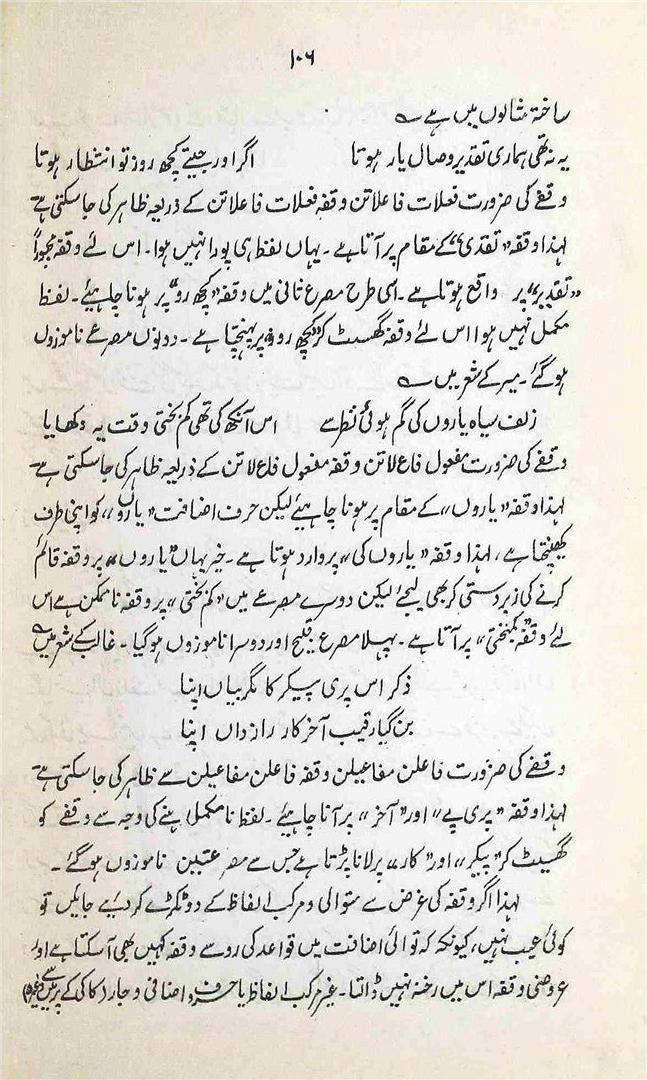 ۱۰۶
ساختہ مثالوں میں ہے ؎
یہ نہ تھی ہماری تقدیر وصال یار ہوتا اگر اور جیتے کچھ روز تو انتظار ہوتا
وقفے کی ضرورت فعلات فاعلاتن وقفہ فعلات فاعلاتن کے ذریعہ ظاہر کی جاسکتی ہے
لہٰذا وقفہ "تقدی" کے مقام پر آتا ہے۔ یہاں لفظ ہی پورا نہیں ہوا۔ اس لئے وقفہ مجبوراً
"تقدیر" پر واقع ہوتا ہے۔ اسی طرح مصرع ثانی میں وقفہ "کچھ رو" پر ہونا چاہیئے۔ لفظ
مکمل نہیں ہوا اس لئے وقفہ گھسٹ کر "کچھ روز" پر پہنچتا ہے۔ دونوں مصرعے ناموزوں
ہوگئے۔ میر کے شعر میں ؎
زلف سیاہ یاروں کی گم ہوئی نظر سے اس آنکھ کی تھی کم بختی وقت یہ دکھایا
وقفے کی ضرورت مفعول فاع لاتن وقفہ مفعول فاع لاتن کے ذریعہ ظاہر کی جاسکتی ہے۔
لہٰذا وقفہ "یاروں" کے مقام پر ہونا چاہیئے لیکن حرف اضافت "یاروں" کو اپنی طرف
کھینچتا ہے، لہٰذا وقفہ "یاروں کی" پر وارد ہوتا ہے۔ خیر یہاں "یاروں" پر وقفہ قائم
کرنے کی زبردستی کر بھی لیجئے لیکن دوسرے مصرعے میں "کم بختی" پر وقفہ ناممکن ہے اس
لئے وقفہ "کمبختی" پر آتا ہے۔ پہلا مصرع قبیح اور دوسرا ناموزوں ہوگیا۔ غالب کے شعر میں ؎
ذکر اس پری پیکر کا نگر بیاں اپنا
بن گیا رقیب آخر کار رازداں اپنا
وقفے کی ضرورت فاعلن مفاعیلن وقفہ فاعلن مفاعیلن سے ظاہر کی جاسکتی ہے
لہٰذا وقفہ "پری پے" اور "آخر" پر آنا چاہیئے۔ لفظ نامکمل بننے کی وجہ سے وقفے کو
گھسیٹ کر "پیکر" اور "کار" پر لانا پڑتا ہے جس سے مصرعتین ناموزوں ہوگئے۔
لہٰذا اگر وقفہ کی غرض سے متوالی و مرکب الفاظ کے دو ٹکڑے کر دیئے جائیں تو
کوئی عیب نہیں، کیونکہ کہ توالی اضافت میں قواعد کی رو سے وقفہ کہیں بھی آسکتا ہے اور
عروضی وقفہ اس میں رخنہ نہیں ڈالتا۔ غیر مرکب الفاظ یا حروف اضافی و جار (کا کی کے پر میں سے وغیرہ)